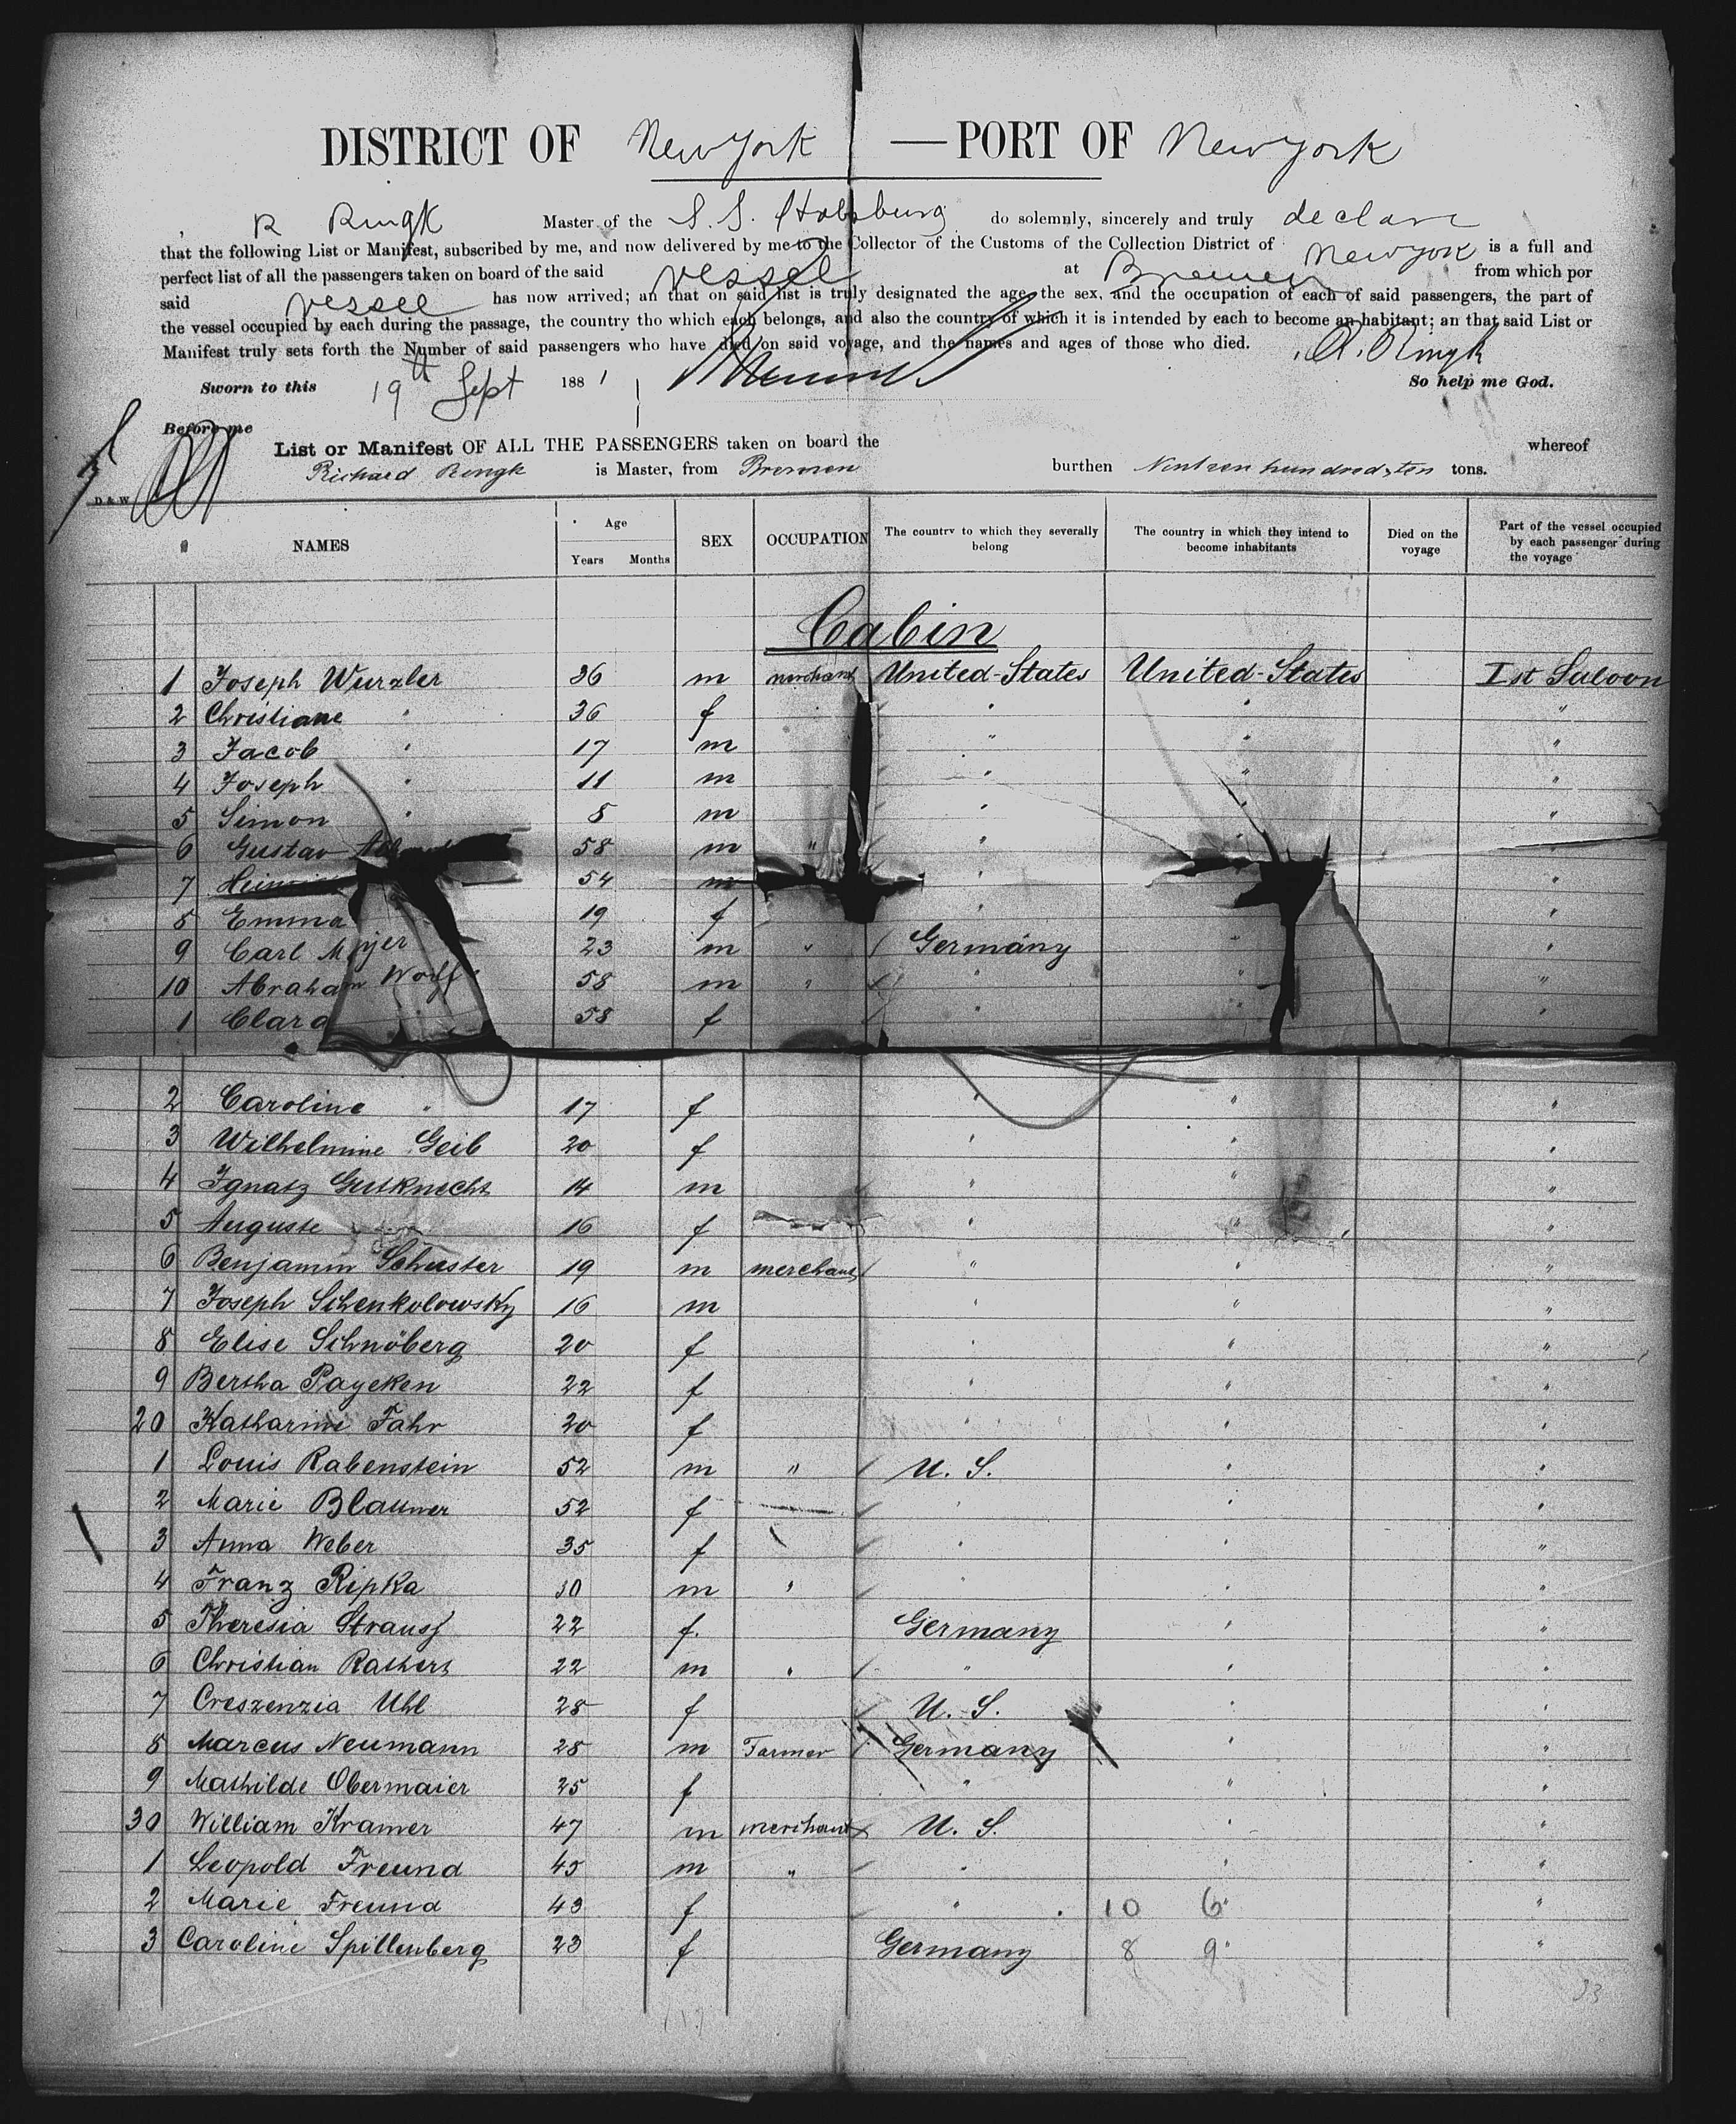 DISTRICT OF New York — PORT OF New York
R Ringk Master of the S. S. Habsburg do solemnly, sincerely and truly declare
that the following List or Manifest, subscribed by me, and now delivered by me to the Collector of the Customs of the Collection District of New York is a full and
perfect list of all the passengers taken on board of the said vessel at Bremen from which por
said vessel has now arrived; an that on said list is truly designated the age, the sex, and the occupation of each of said passengers, the part of
the vessel occupied by each during the passage, the country tho which each belongs, and also the country of which it is intended by each to become an habitant; an that said List or
Manifest truly sets forth the Number of said passengers who have died on said voyage, and the names and ages of those who died. R. Ringk
Sworn to this 19th Sept 1881 So help me God.
Before me
List or Manifest OF ALL THE PASSENGERS taken on board the whereof
Richard Ringk is Master, from Bremen burthen Nintzen hundred, ten tons.
D & W
NAMES Age Years Months SEX OCCUPATION The country to which they severally belong The country in which they intend to become inhabitants Died on the voyage Part of the vessel occupied by each passenger during the voyage
Cabin
1 Joseph Wurzler 36 m merchant United-States United-States Ist Saloon
2 Christiane " 36 f " " "
3 Jacob " 17 m " " "
4 Joseph " 11 m " " "
5 Simon " 8 m " " "
6 Gustav 58 m " " " "
7 54 m " "
8 Emma 19 f " "
9 Carl Meyer 23 m " Germany "
10 Abraham Wolf 58 m " " " "
1 Clara 58 f " "
2 Caroline " 17 f " " "
3 Wilhelmine Geib 20 f " " "
4 Ignatz Gutknecht 14 m " " "
5 Auguste 16 f " " "
6 Benjamin Schuster 19 m merchant " " "
7 Joseph Schenkolowsky 16 m " " "
8 Elise Schnöberg 20 f " " "
9 Bertha Payeken 22 f " " "
20 Katharine Fahr 20 f " " "
1 Louis Rabenstein 52 m " U. S. " "
2 Marie Blauner 52 f " " "
3 Anna Weber 35 f " " "
4 Franz Ripka 30 m " " " "
5 Theresia Strauss 22 f. Germany " "
6 Christian Rathers 22 m " " " "
7 Creszenzia Uhl 28 f U. S. " "
8 Marcus Neumann 28 m Farmer Germany " "
9 Mathilde Obermaier 25 f " " "
30 William Kramer 47 m merchant U. S. " "
1 Leopold Freund 45 m " " " "
2 Marie Freund 43 f " 10 6 " "
3 Caroline Spillenberg 23 f Germany 8 9 " "
33